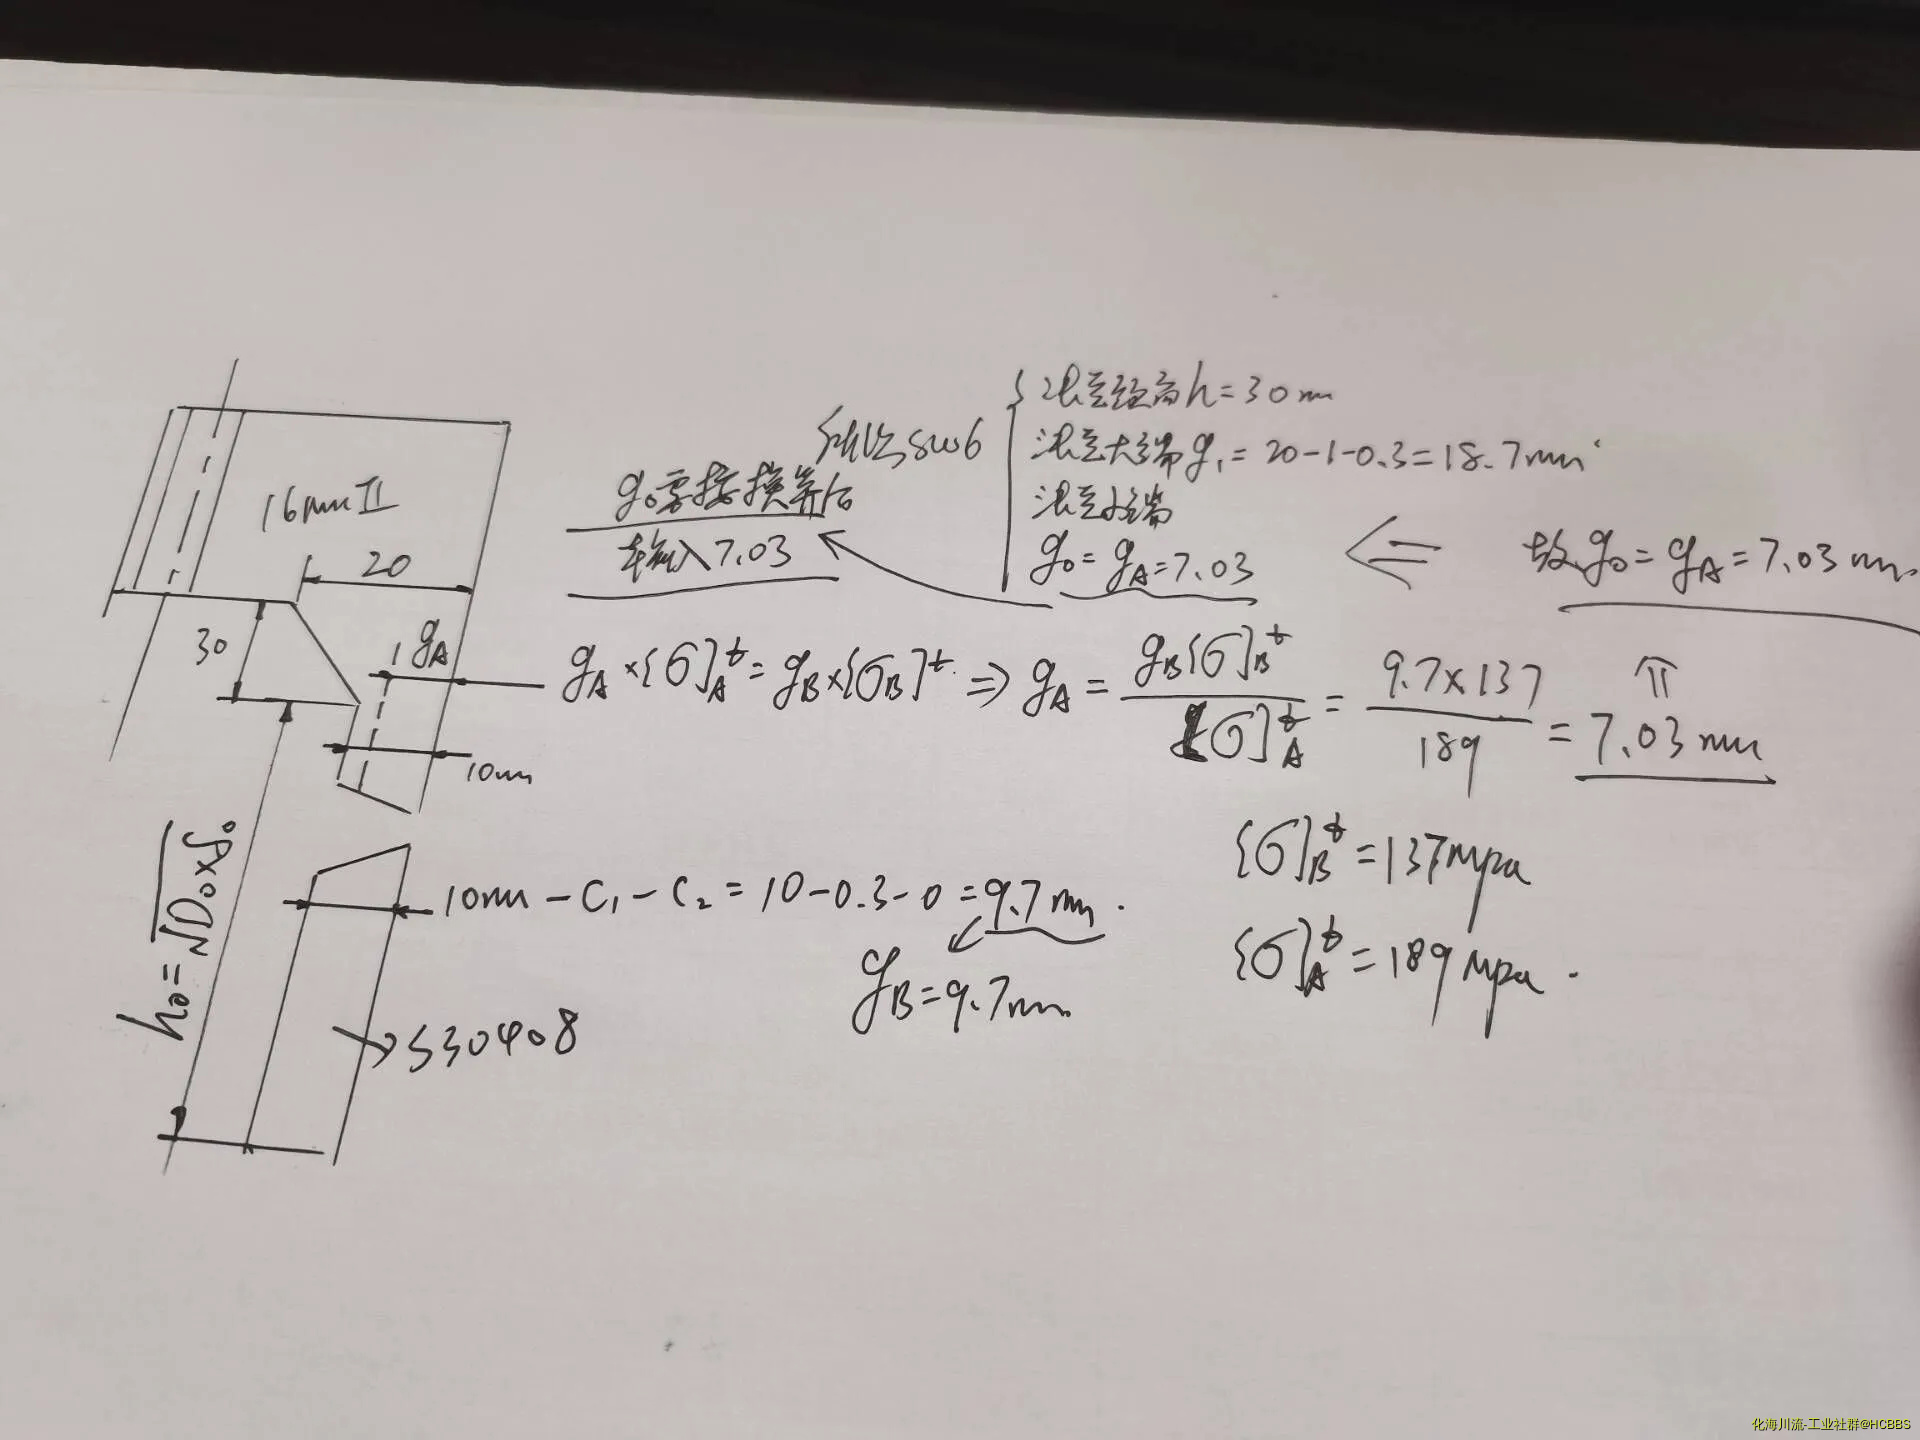 16MnⅡ
20
30
gA
10mm
h0=√D0×δ0
S30408
g0需按换算后
来输入7.03
SW6
h=30mm
g1=20-1-0.3=18.7mm
g0=gA=7.03
⇐ 故g0=gA=7.03mm
gA×[σ]A^t=gB×[σB]^t ⇒ gA=gB[σ]B^t/[σ]A^t=9.7×137/189=7.03mm
10mm-C1-C2=10-0.3-0=9.7mm.
gB=9.7mm
[σ]B^t=137mpa
[σ]A^t=189mpa.
化海川流-工业社群@HCBBS